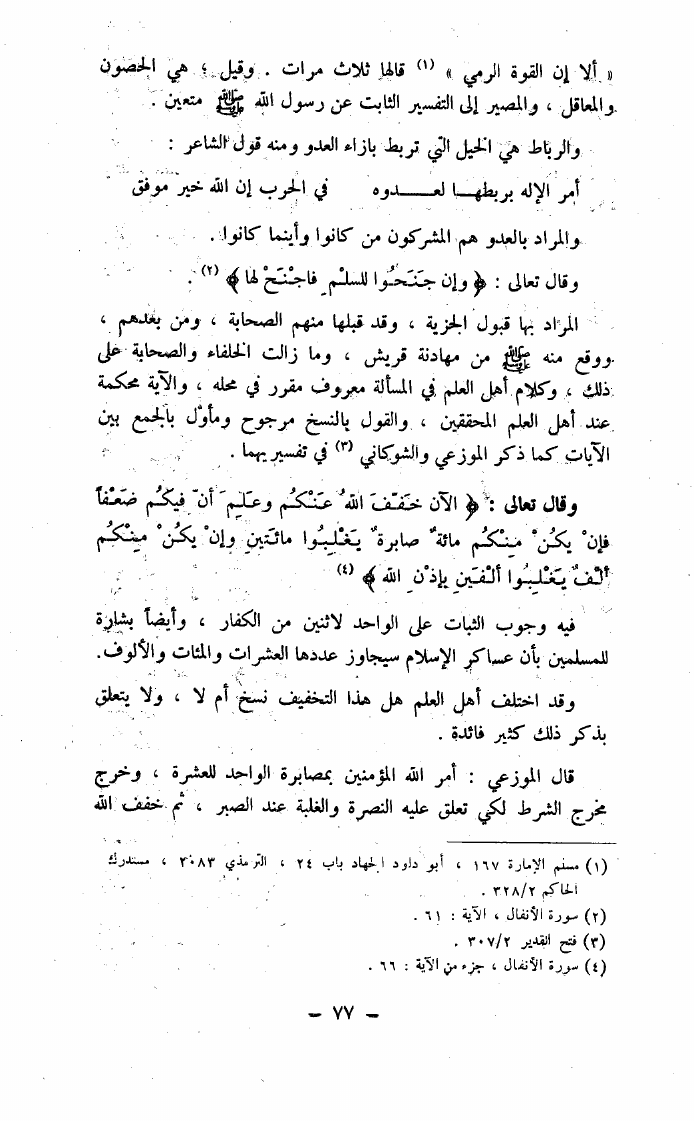 « ألا إن القوة الرمي » (١) قالها ثلاث مرات . وقيل ؛ هي الحصون
والمعاقل ، والمصير إلى التفسير الثابت عن رسول الله ﷺ متعين .
والرباط هي الخيل التي تربط بازاء العدو ومنه قول الشاعر :
أمر الإله بربطهــا لعــدوه في الحرب إن الله خير موفق
والمراد بالعدو هم المشركون من كانوا وأينما كانوا .
وقال تعالى : ﴿ وإن جَنَحُوا للسلْمِ فاجْنَحْ لها ﴾ (٢) .
المراد بها قبول الجزية ، وقد قبلها منهم الصحابة ، ومن بعدهم ،
ووقع منه ﷺ من مهادنة قريش ، وما زالت الخلفاء والصحابة على
ذلك ، وكلام أهل العلم في المسألة معروف مقرر في محله ، والآية محكمة
عند أهل العلم المحققين ، والقول بالنسخ مرجوح ومأول بالجمع بين
الآيات كما ذكر الموزعي والشوكاني (٣) في تفسيريهما .
وقال تعالى : ﴿ الآن خَفّفَ اللهُ عَنْكُم وعَلِمَ أنّ فيكُم ضَعْفاً
فإنْ يكُنْ مِنْكُم مائةٌ صابرةٌ يَغْلِبُوا مائتَينِ وإنْ يكُنْ مِنْكُم
ألْفٌ يَغْلِبُوا ألْفَينِ بإذْنِ الله ﴾ (٤)
فيه وجوب الثبات على الواحد لاثنين من الكفار ، وأيضاً بشارة
للمسلمين بأن عساكر الإسلام سيجاوز عددها العشرات والمئات والألوف.
وقد اختلف أهل العلم هل هذا التخفيف نسخ أم لا ، ولا يتعلق
بذكر ذلك كثير فائدة .
قال الموزعي : أمر الله المؤمنين بمصابرة الواحد للعشرة ، وخرج
مخرج الشرط لكي تعلق عليه النصرة والغلبة عند الصبر ، ثم خفف الله
(١) مسلم الإمارة ١٦٧ ، أبو داود الجهاد باب ٢٤ ، الترمذي ٣٠٨٣ ، مستدرك
الحاكم ٣٢٨/٢ .
(٢) سورة الأنفال ، الآية : ٦١ .
(٣) فتح القدير ٣٠٧/٢ .
(٤) سورة الأنفال ، جزء من الآية : ٦٦ .
– ٧٧ –